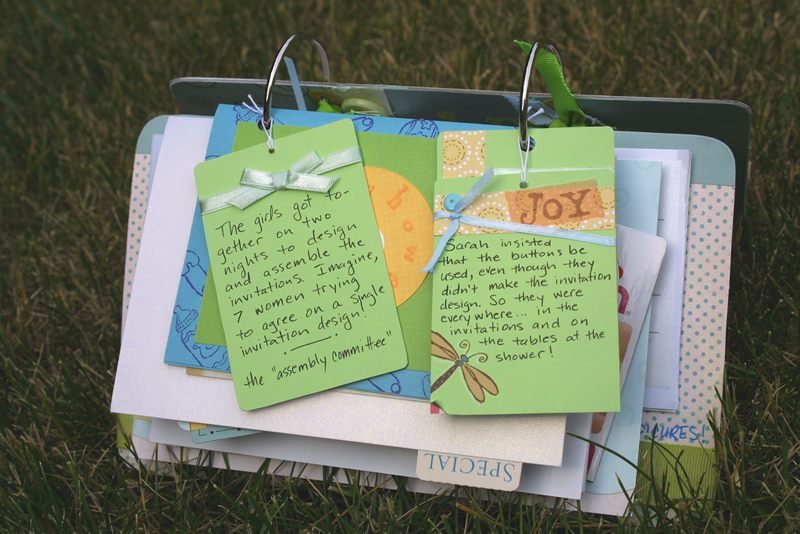 The girls got to-
gether on two
nights to design
and assemble the
invitations. Imagine,
7 women trying
to agree on a single
invitation design!
the "assembly committee"
JOY
Sarah insisted
that the buttons be
used, even though they
didn't make the invitation
design. So they were
everywhere... in the
invitations and on
the tables at the
shower!
SPECIAL